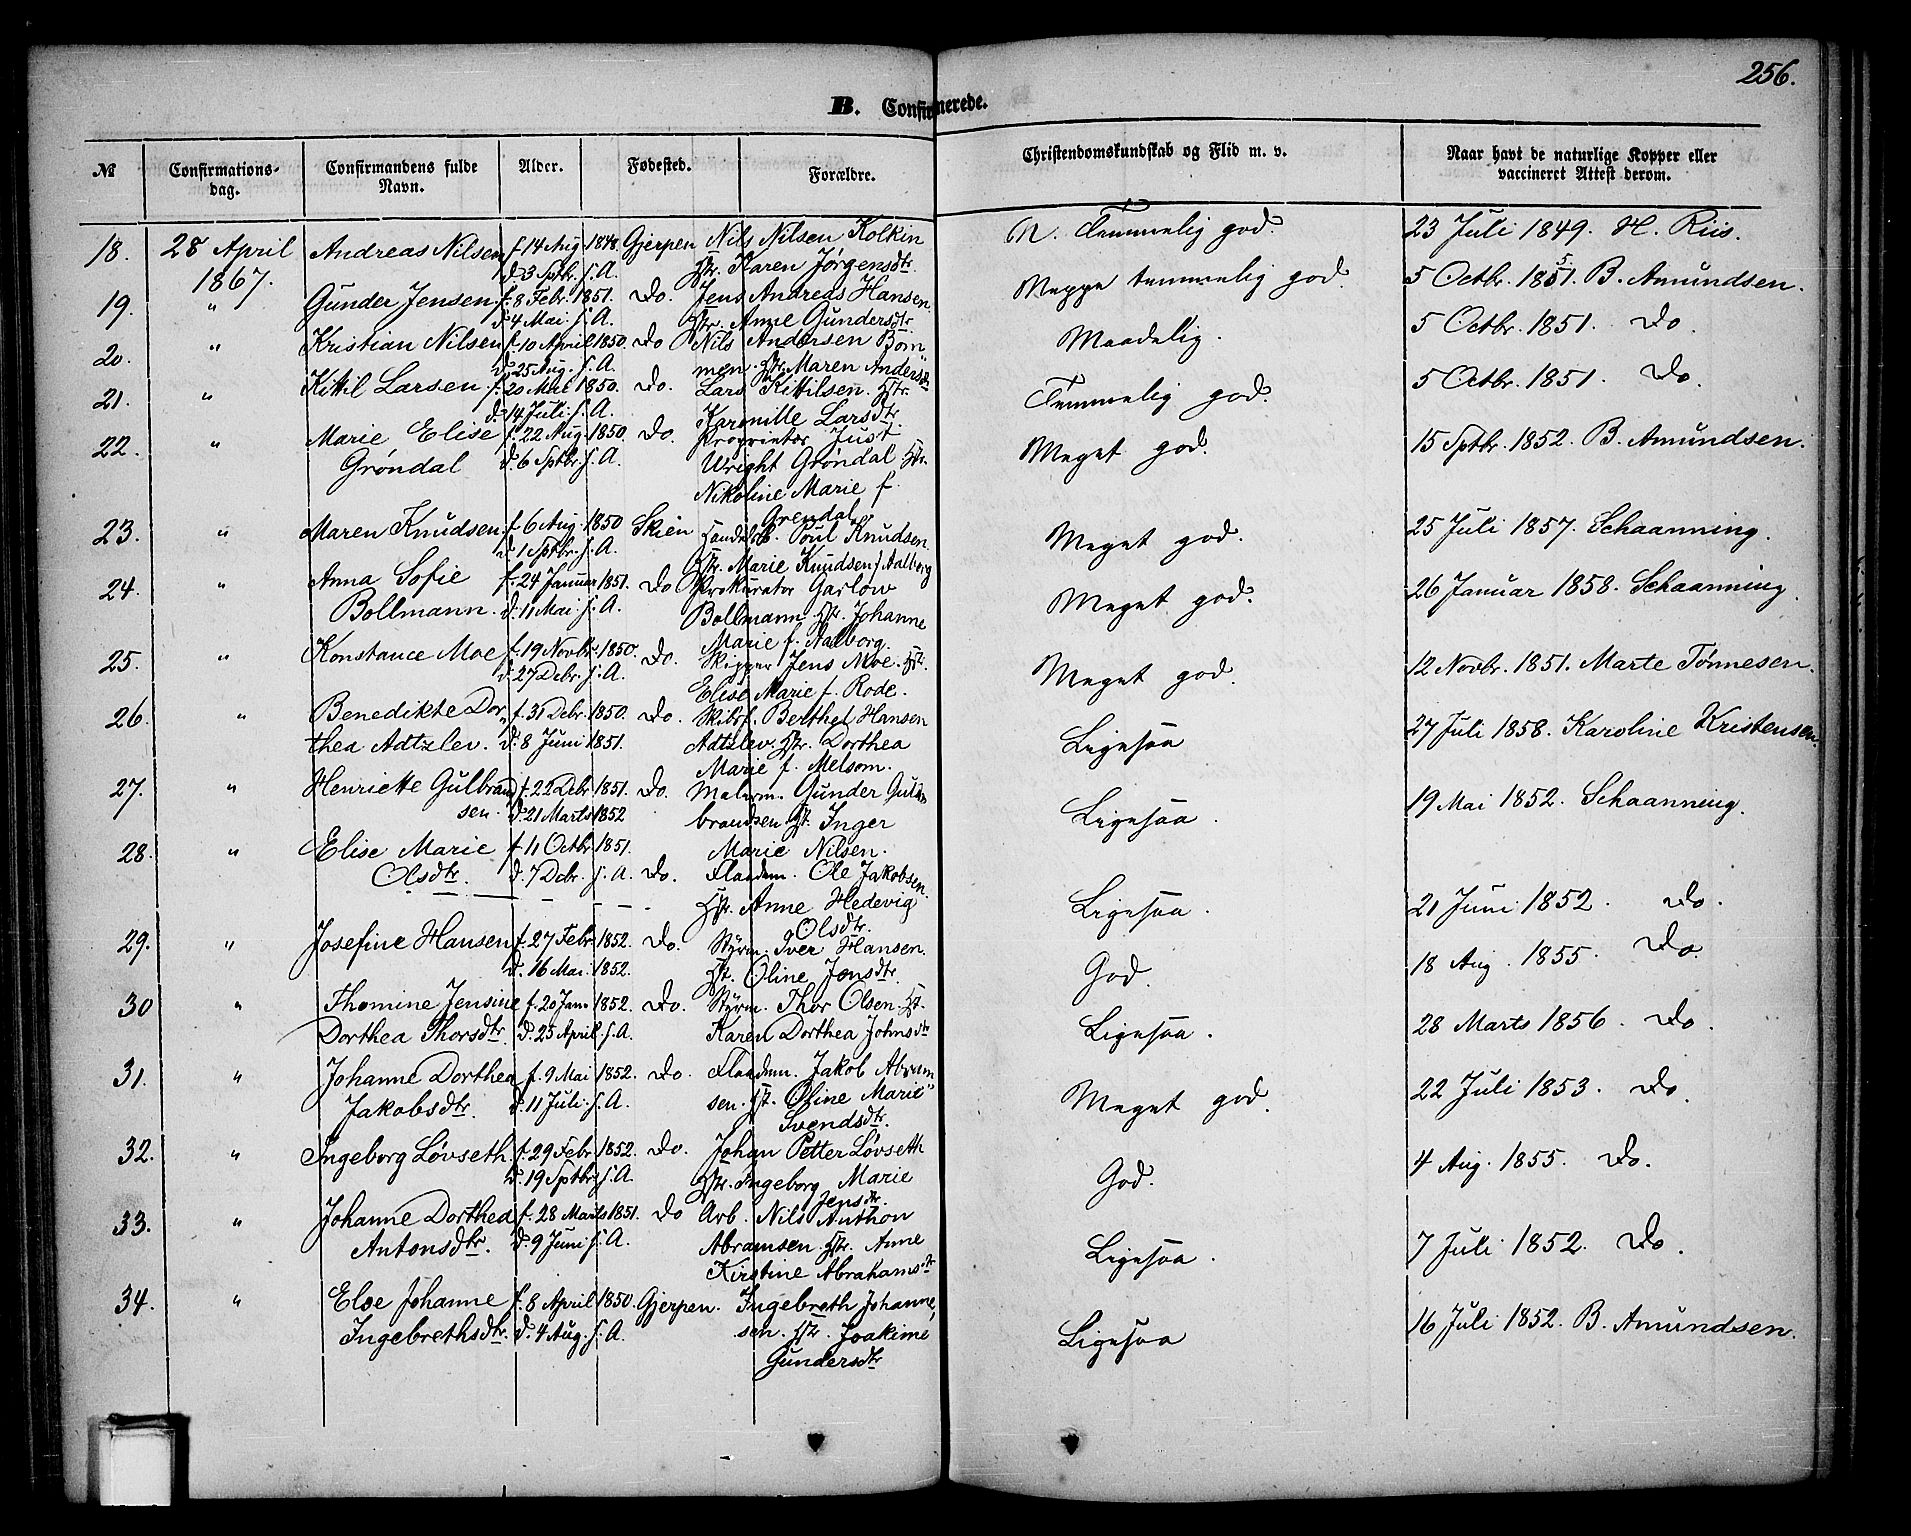 256.
B. Confirmerede.
№ Confirmations-dag. Confirmandens fulde Navn. Alder. Fødested. Forældre. Christendomskundskab og Flid m. v. Naar havt de naturlige Kopper eller vaccineret Attest derom.
18. 28 April 1867. Andreas Nilsen f. 14 Aug. 1848 Gjerpen Nils Nilsen Kolkin
d. 3 Sptbr. s. A. Hstr. Karen Jørgensdtr.
N. Temmelig god. 23 Juli 1849. H. Riis.
19. " Gunder Jensen. f. 8 Febr. 1851. Do. Jens Andreas Hansen
d. 4 Mai. s. A. Hstr. Anne Gundersdtr.
Meget temmelig god. 5 Octbr. 1851. B. Amundsen.
20. " Kristian Nilsen f. 10 April 1850. Do Nils Andersen Bom
d. 25 Aug. s. A. men. Hstr. Maren Andersdtr
Maadelig. 5 Octbr. 1851. Do.
21. " Kittil Larsen. f. 20 Mai 1850. Do. Lars Kittilsen. Hstr.
d. 14 Juli. s. A. Karenille Larsdtr.
Temmelig god. 5 Octbr. 1851. Do.
22. " Marie Elise f. 22 Aug. 1850. Do. Proprietær Just
Grøndal d. 6 Sptbr. s. A. Wright Grøndal Hstr.
Nikoline Marie f.
Grøndal
Meget god. 15 Sptbr. 1852. B. Amundsen.
23. " Maren Knudsen. f. 6 Aug. 1850 Skien Handelsb. Poul Knudsen.
d. 1 Sptbr. s. A. Hstr. Marie Knudsen f. Aalborg
Meget god. 25 Juli 1857. Schaanning.
24. " Anna Sofie f. 24 Januar 1851. Do Prokurator Garlow
Bollmann. d. 11 Mai. s. A. Bollmann Hstr. Johanne
Marie f. Aalborg.
Meget god. 26 Januar 1858. Schaanning.
25. " Konstance Moe f. 19 Novbr. 1850. Do. Skipper Jens Moe. Hstr.
d. 27 Debr. s. A. Elise Marie f. Rode.
Meget god. 12 Novbr. 1851. Marte Tønnesen.
26. " Benedikte Dor f. 31 Debr. 1850. Do. Skibsf. Berthel Hansen
thea Adtzlev. d. 8 Juni 1851. Adtzlev. Hstr. Dorthea
Marie f. Melsom.
Ligesaa 27 Juli 1858. Karoline Kristensen.
27. " Henriette Gulbrand f. 22 Debr. 1851. Do. Malerm. Gunder Gul
sen. d. 21 Marts 1852 brandsen Hst. Inger
Marie Nilsen.
Ligesaa. 19 Mai 1852. Schaanning.
28. " Elise Marie f. 11 Octbr. 1851.
Olsdtr. d. 7 Debr. s. A. Do. Flaadem. Ole Jakobsen.
Hstr. Anne Hedevig
Olsdtr.
Ligesaa. 21 Juni 1852. Do.
29. " Josefine Hansen f. 27 Febr. 1852. Do. Styrm. Iver Hansen.
d. 16 Mai. 1852. Hst. Oline Jensdtr.
God. 18 Aug. 1855. Do.
30 " Thomine Jensine f. 20 Jan. 1852. Do. Styrm. Thor Olsen. Hst.
Dorthea Thorsdtr. d. 25 April s. A. Karen Dorthea Johnsdtr
Ligesaa. 28 Marts 1856. Do.
31. " Johanne Dorthea f. 9 Mai 1852. Do. Flaadem. Jakob Abram
Jakobsdtr. d. 11 Juli. s. A. sen. Hst. Oline Marie
Svendsdtr.
Meget god. 22 Juli 1853. Do.
32. " Ingeborg Løvseth. f. 29 Febr. 1852. Do. Johan Petter Løvseth
d. 19 Sptbr. s. A. Hstr. Ingeborg Marie
Jensdtr.
God. 4 Aug. 1855. Do.
33. " Johanne Dorthea f. 28 Marts 1851. Do Arb. Nils Anthon
Antonsdtr. d. 9 Juni s. A. Abramsen. Hstr. Anne
Kirstine Abrahamsdtr
Ligesaa. 7 Juli 1852. Do.
34. " Else Johanne f. 8 April 1850. Gjerpen. Ingebreth Johanne
Ingebrethsdtr. d. 4 Aug. s. A. sen. Hstr. Joakime
Gundersdtr
Ligesaa 16 Juli 1852. B. Amundsen.